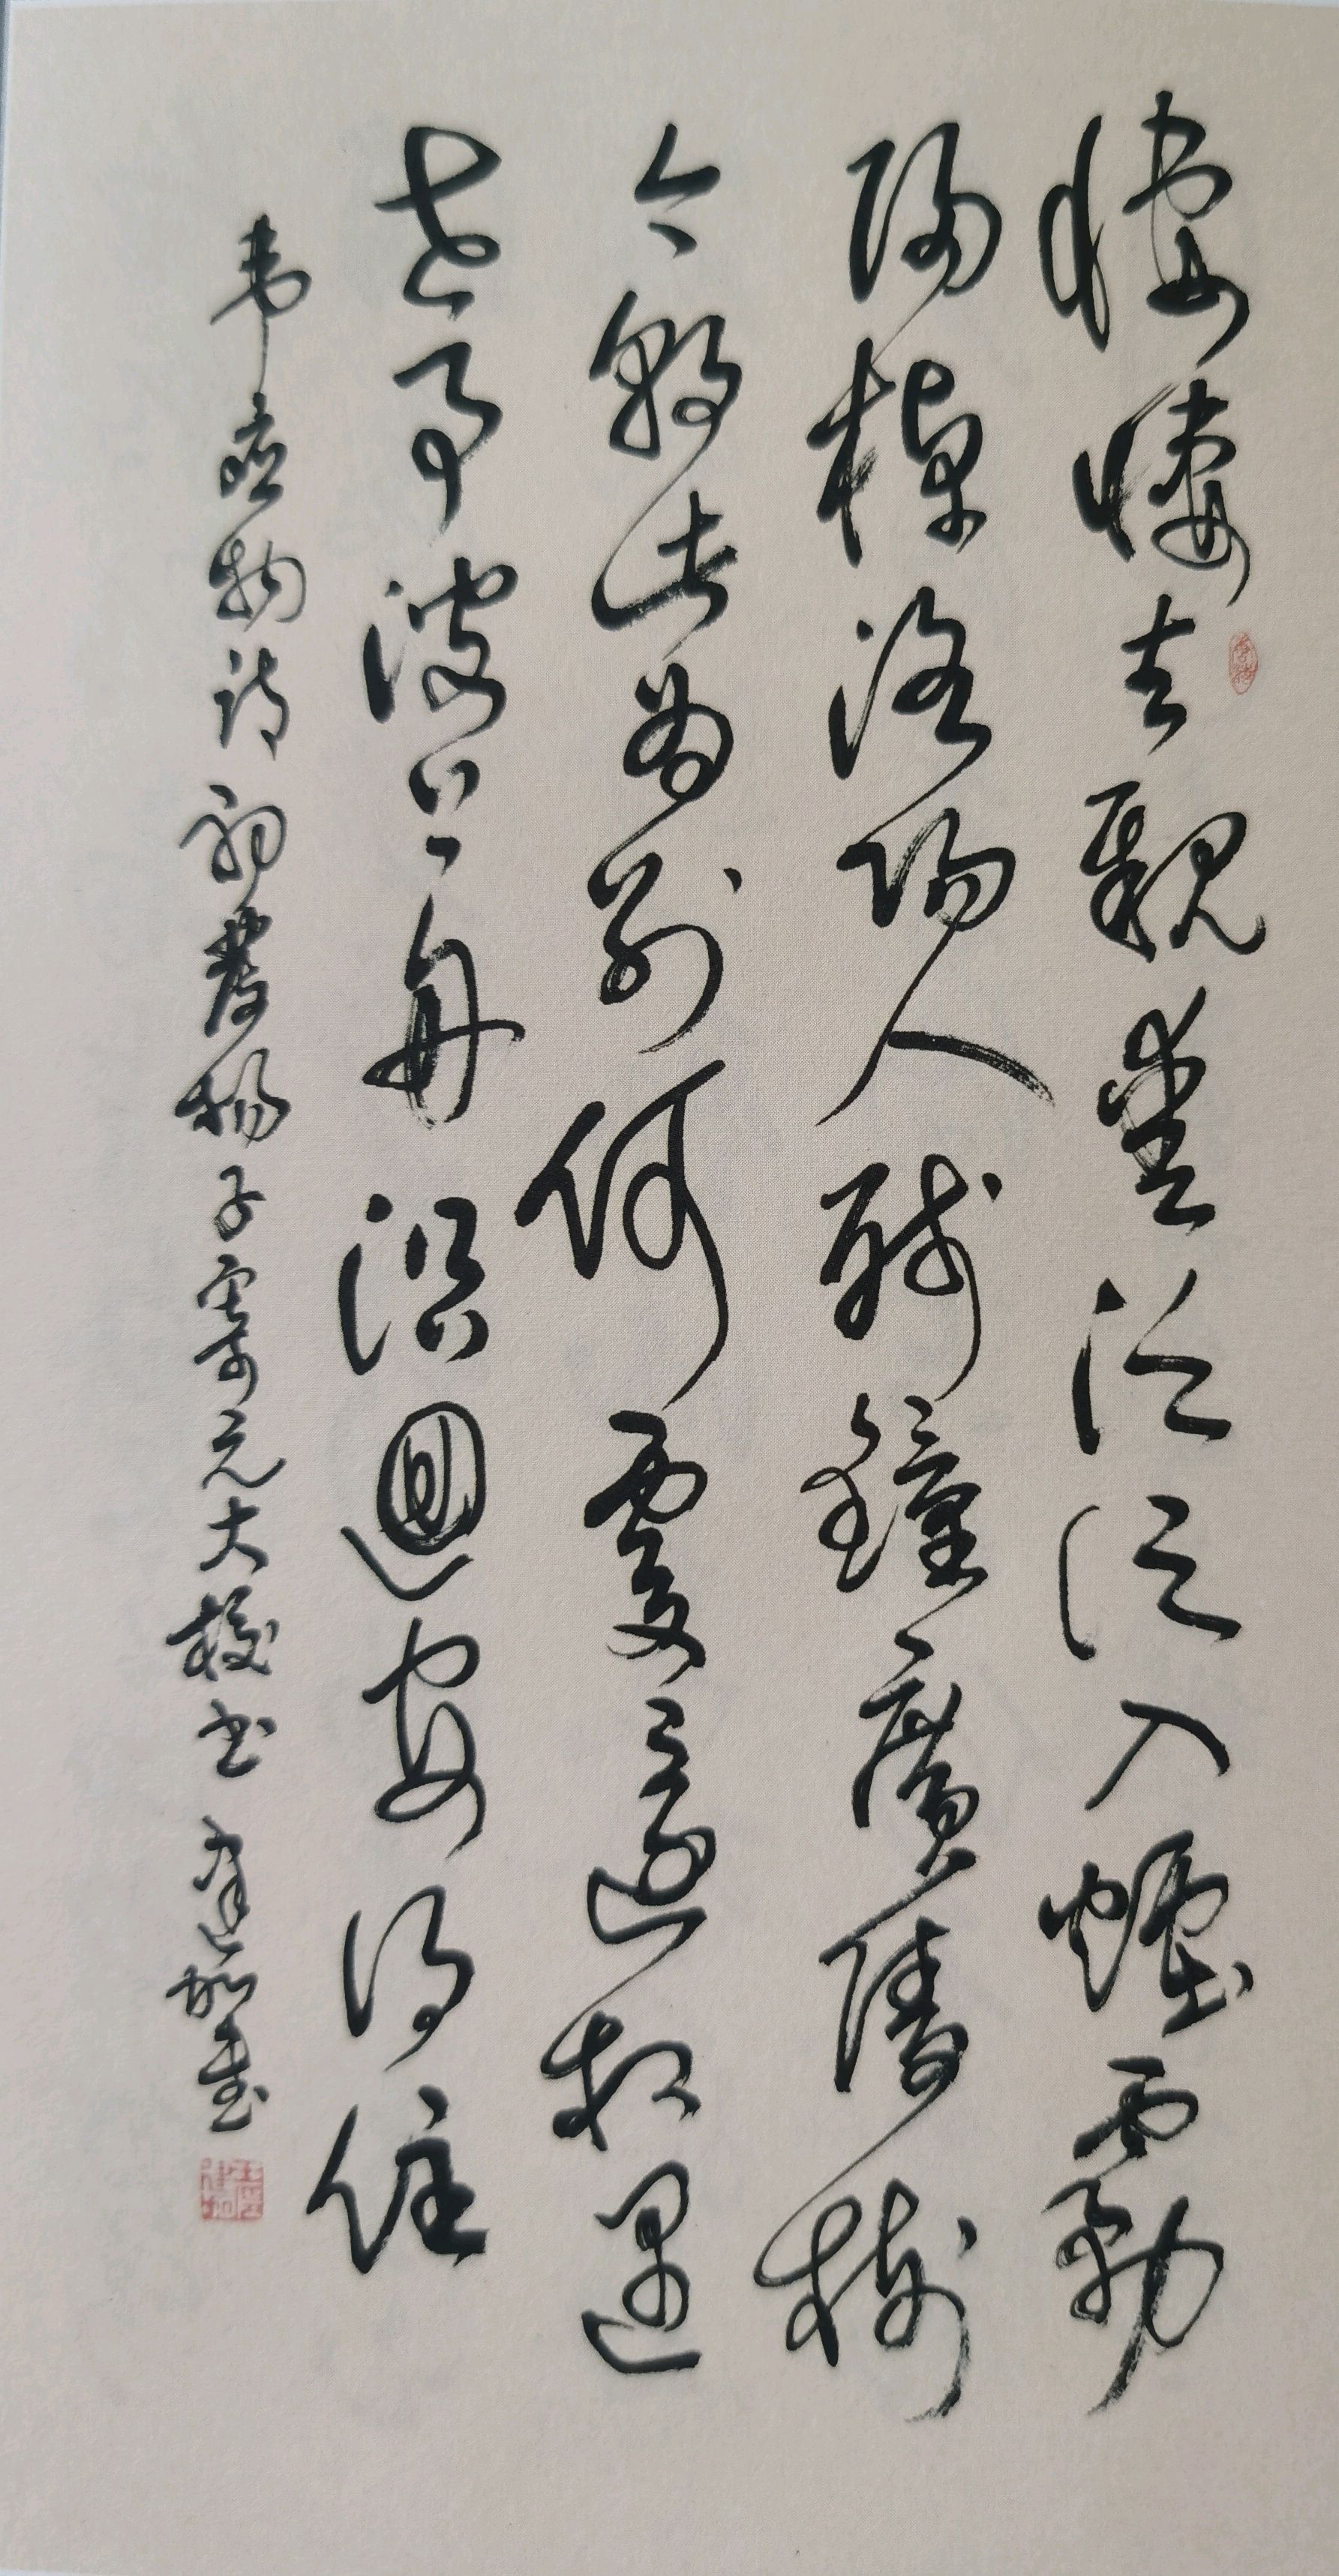 悽悽去親愛泛泛入煙霧
歸棹洛陽人殘鐘廣陵樹
今朝此為別何處還相遇
世事波上舟沿迴安得住
韋應物詩初發揚子寄元大校書